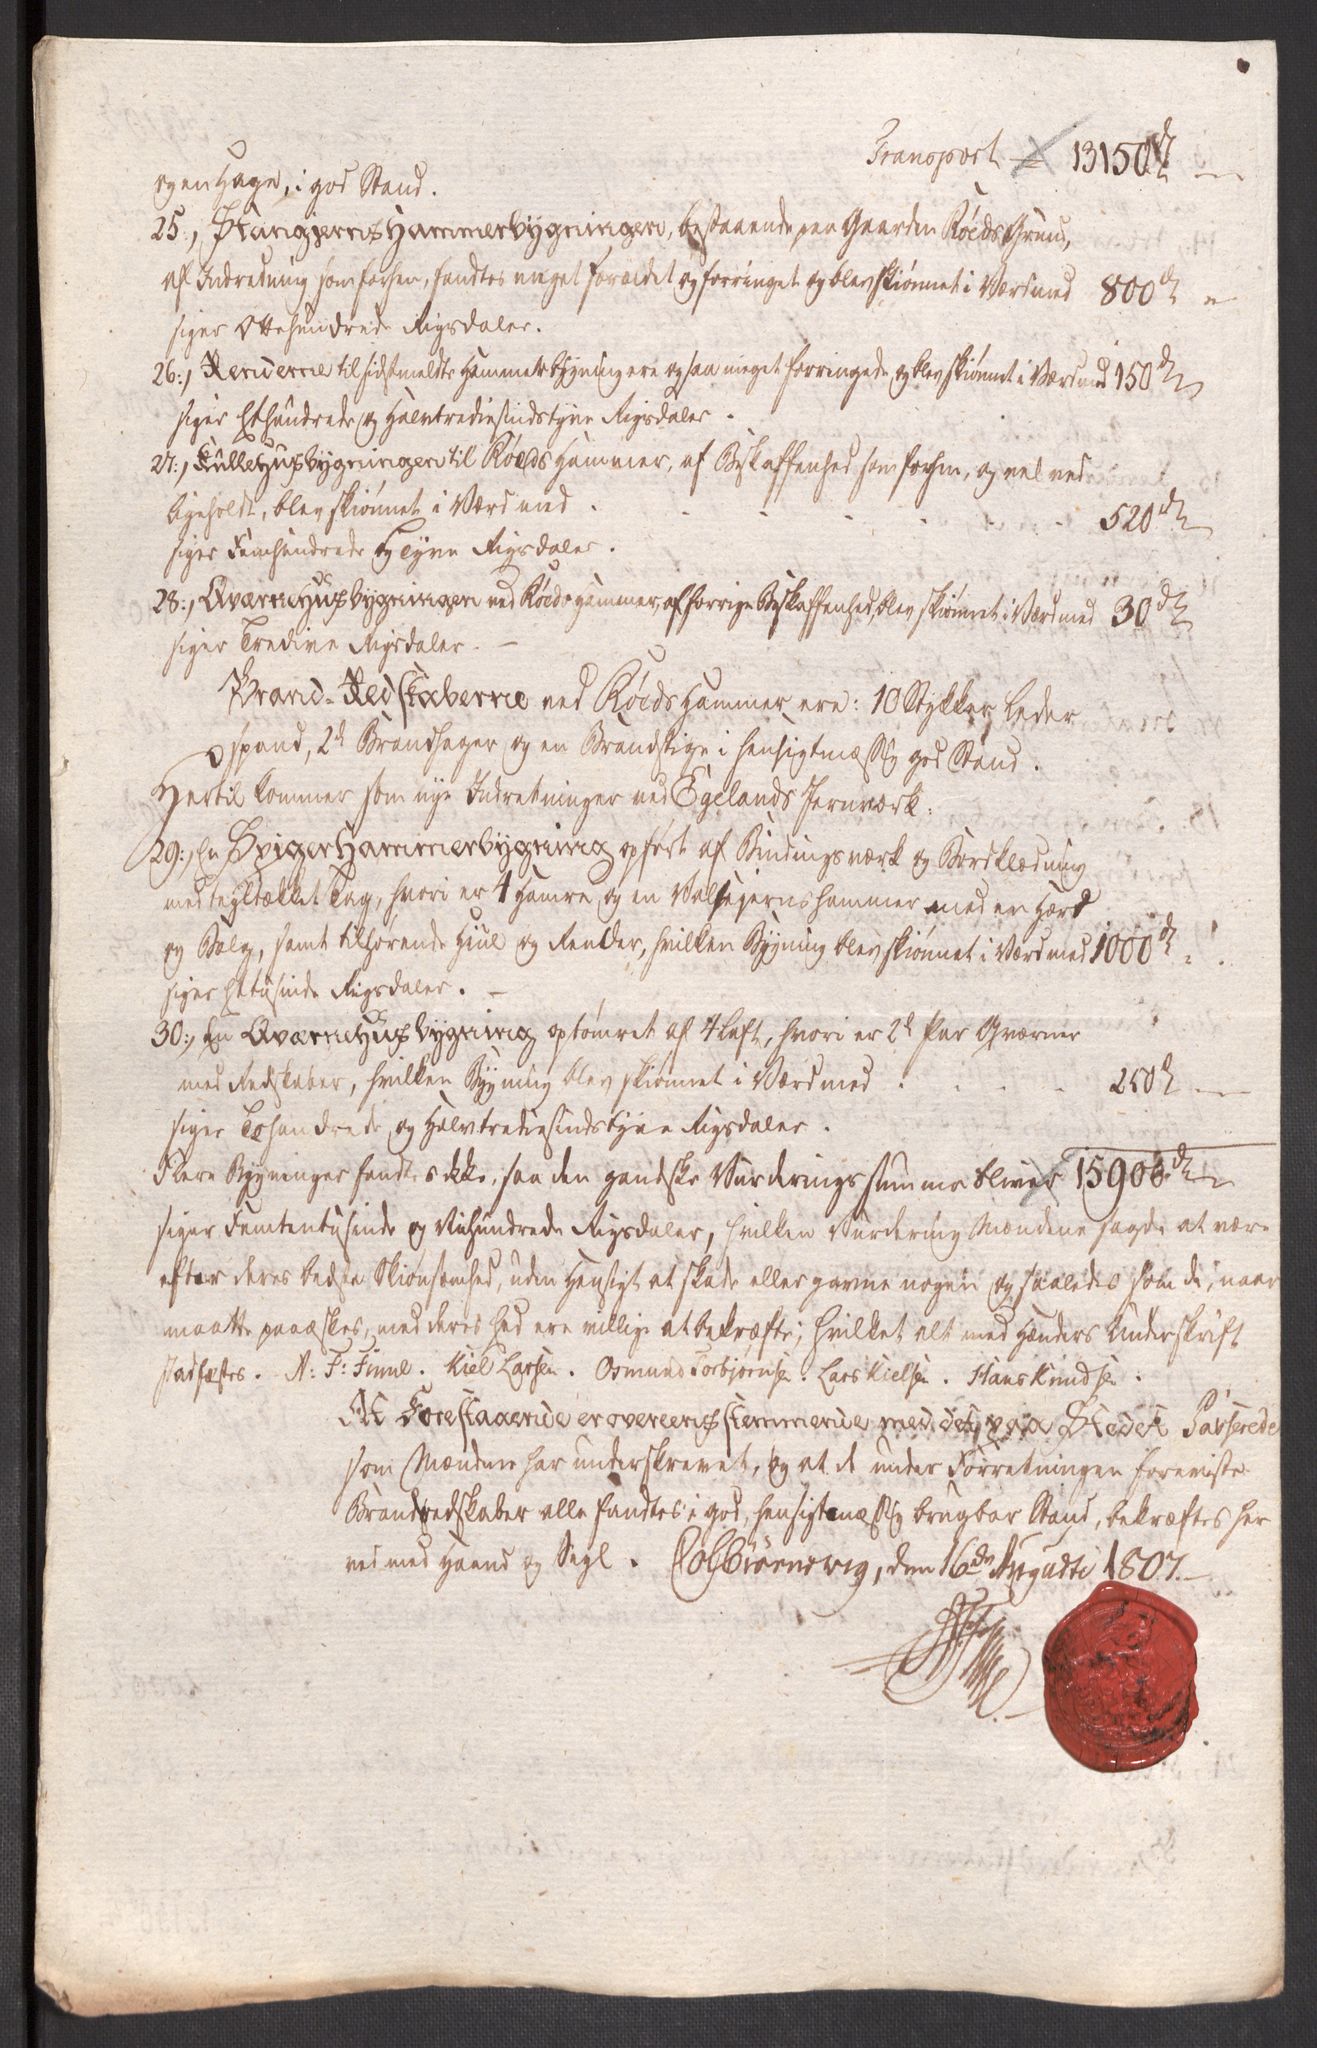 Transport 13150 rd
og en Hage, i god Stand.
25:, Stangjerns Hammerbygningen, bestaaende paa Gaarden Röeds Grund,
af Indredning som forhen, fandtes meget foraldet og forringet og blev skiönnet i Værd med 800 rd
siger Ottehundrede Rigsdaler.
26:, Renderne til sidstmeldte Hammerbygning ere ogsaa meget forringede og blev skiönnet i Værd med 150 rd
siger Ethundrede og Halvtrediesindstyve Rigsdaler.
27:, Kullehusbygningen til Röeds Hammer, af Beskaffenhed som forhen, og vel ved
ligeholdt, blev skiönnet i Værd med . . . . . 520 rd
siger Femhundrede og Tyve Rigsdaler.
28:, Qværnehusbygningen ved Röeds Hammer, af forrige Beskaffenhed, blev skiönnet i Værd med 30 rd
siger Tredive Rigsdaler. -
Brand-Redskaberne ved Röeds Hammer ere: 10 Stykker Leder
spand, 2de Brandhager og en Brandstige i hensigtmæssig god Stand.
Hertil kommer som nye Indretninger ved Egelands Jernværk:
29:, En Spiger Hammerbygning opfört af Bindingsværk og Bordklædning
med teyltækket Tag, hvori er 4 Hamre og en Valsejernshammer med en Hærd
og Bælg, samt tilhörende Hiul og Render, hvilken Bygning blev skiönnet i Værd med 1000 rd
siger Ettusinde Rigsdaler. -
30:, En Qværnehusbygning optömret af 4 Laft, hvori er 2de Par Qværner
med Redskaber, hvilken Bygning blev skiönnet i Værd med . . . . 250 rd
siger Tohundrede og Halvtrediesindstyve Rigsdaler.
Flere Bygninger fandtes ikke, saa den gandske Vurderings summa bliver 15900 rd
siger Femtentusinde og Nihundrede Rigsdaler, hvilken Vurdering Mændene sagde at være
efter deres bedste Skiönsomhed, uden Hensigt at skade eller gavne nogen og saaledes som de, naar
maatte paaæskes, med deres Eed ere villige at bekræfte; hvilket alt med Hænders Underskrift
stadfæstes. N: F: Finne. Kiel Larsen. Osmund Torbjörnsen. Lars Kielsen. Hans Knudsen.
At Forestaaende er overeensstemmende med det, paa Stedet Passerede
som Mændene har underskrevet, og at de under Forretningen foreviste
Brandredskaber alle fandtes i god, hensigtmæssig brugbar Stand, bekræftes her
ved med Haand og Segl. Colbiörnsvig, den 16de Augusti 1807.